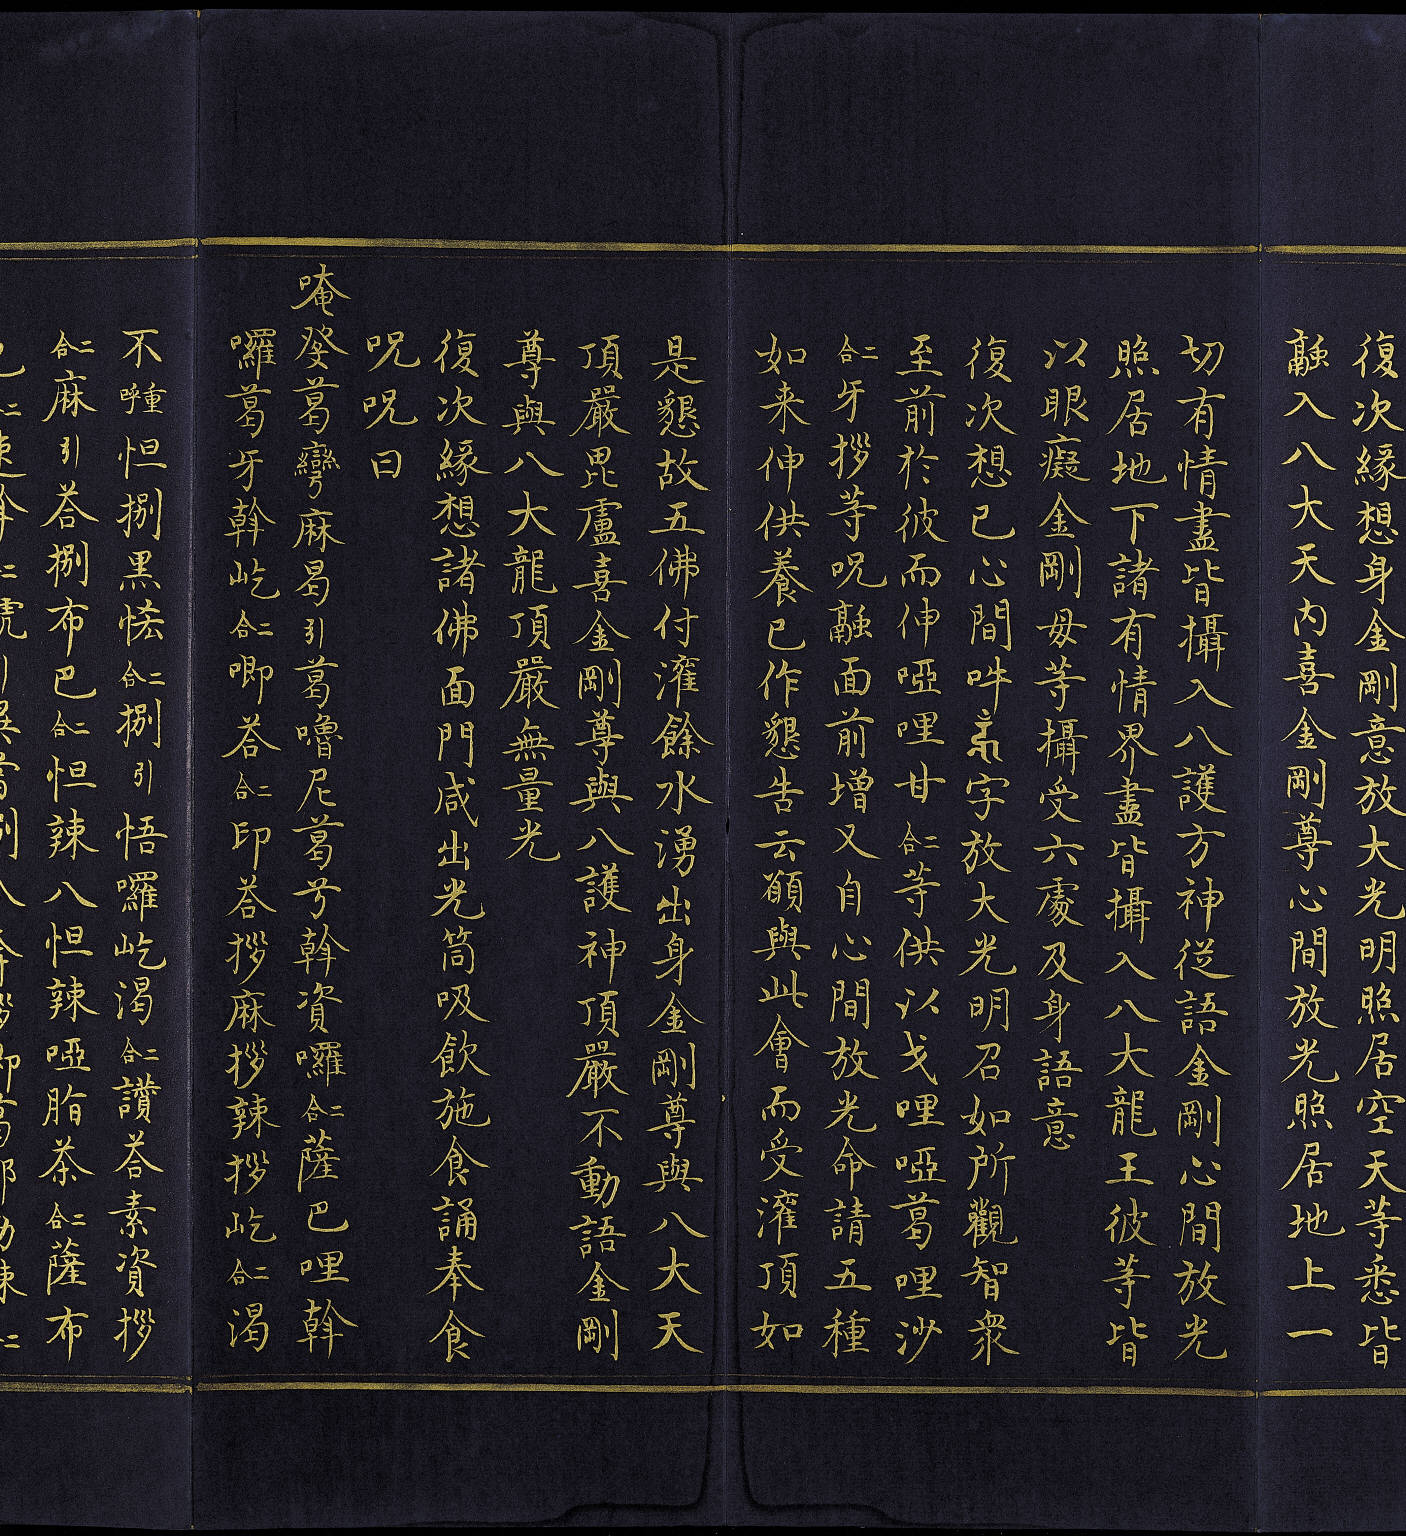 復次緣想身金剛意放大光明照居空天等悉皆
融入八大天內喜金剛尊心間放光照居地上一
切有情盡皆攝入八護方神從語金剛心間放光
照居地下諸有情界盡皆攝入八大龍王彼等皆
以眼癡金剛母等攝受六處及身語意
復次想已心間吽字放大光明召如所觀智眾
至前於彼而伸啞哩甘二合等供以戈哩啞葛哩沙
二合牙拶等呪融面前增又自心間放光命請五種
如来伸供養已作懇告云願與此會而受灌頂如
是懇故五佛付灌餘水湧出身金剛尊與八大天
頂嚴毘盧喜金剛尊與八護神頂嚴不動語金剛
尊與八大龍頂嚴無量光
復次緣想諸佛面門咸出光筒吸飲施食誦奉食
呪呪曰
唵癹葛彎麻曷引葛嚕尼葛兮斡資囉二合薩巴哩斡
囉葛牙斡屹二合唧荅二合印荅拶麻拶辣拶屹二合渴
不重呼怛捌黑㤥二合捌引悟囉屹渴二合讚荅素資拶
二合麻引荅捌布巴二合怛辣八怛辣啞脂茶二合薩布